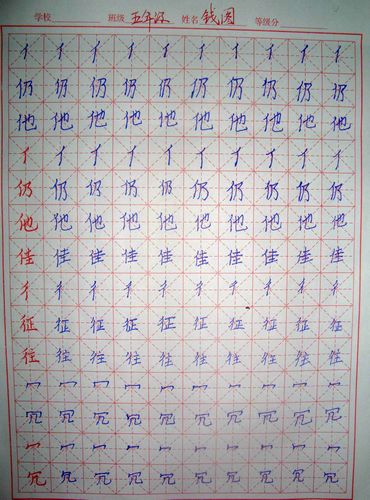 学校 班级 五年级 姓名 钱圆 等级分
亻 亻 亻 亻 亻 亻 亻 亻 亻 亻
仍 仍 仍 仍 仍 仍 仍 仍 仍 仍
他 他 他 他 他 他 他 他 他 他
亻 亻 亻 亻 亻 亻 亻 亻 亻 亻
仍 仍 仍 仍 仍 仍 仍 仍 仍 仍
他 他 他 他 他 他 他 他 他 他
佳 佳 佳 佳 佳 佳 佳 佳 佳 佳
彳 彳 彳 彳 彳 彳 彳 彳 彳 彳
征 征 征 征 征 征 征 征 征 征
往 往 往 往 往 往 往 往 往 往
冖 冖 冖 冖 冖 冖 冖 冖 冖 冖
冗 冗 冗 冗 冗 冗 冗 冗 冗 冗
冖 冖 冖 冖 冖 冖 冖 冖 冖 冖
冗 冗 冗 冗 冗 冗 冗 冗 冗 冗